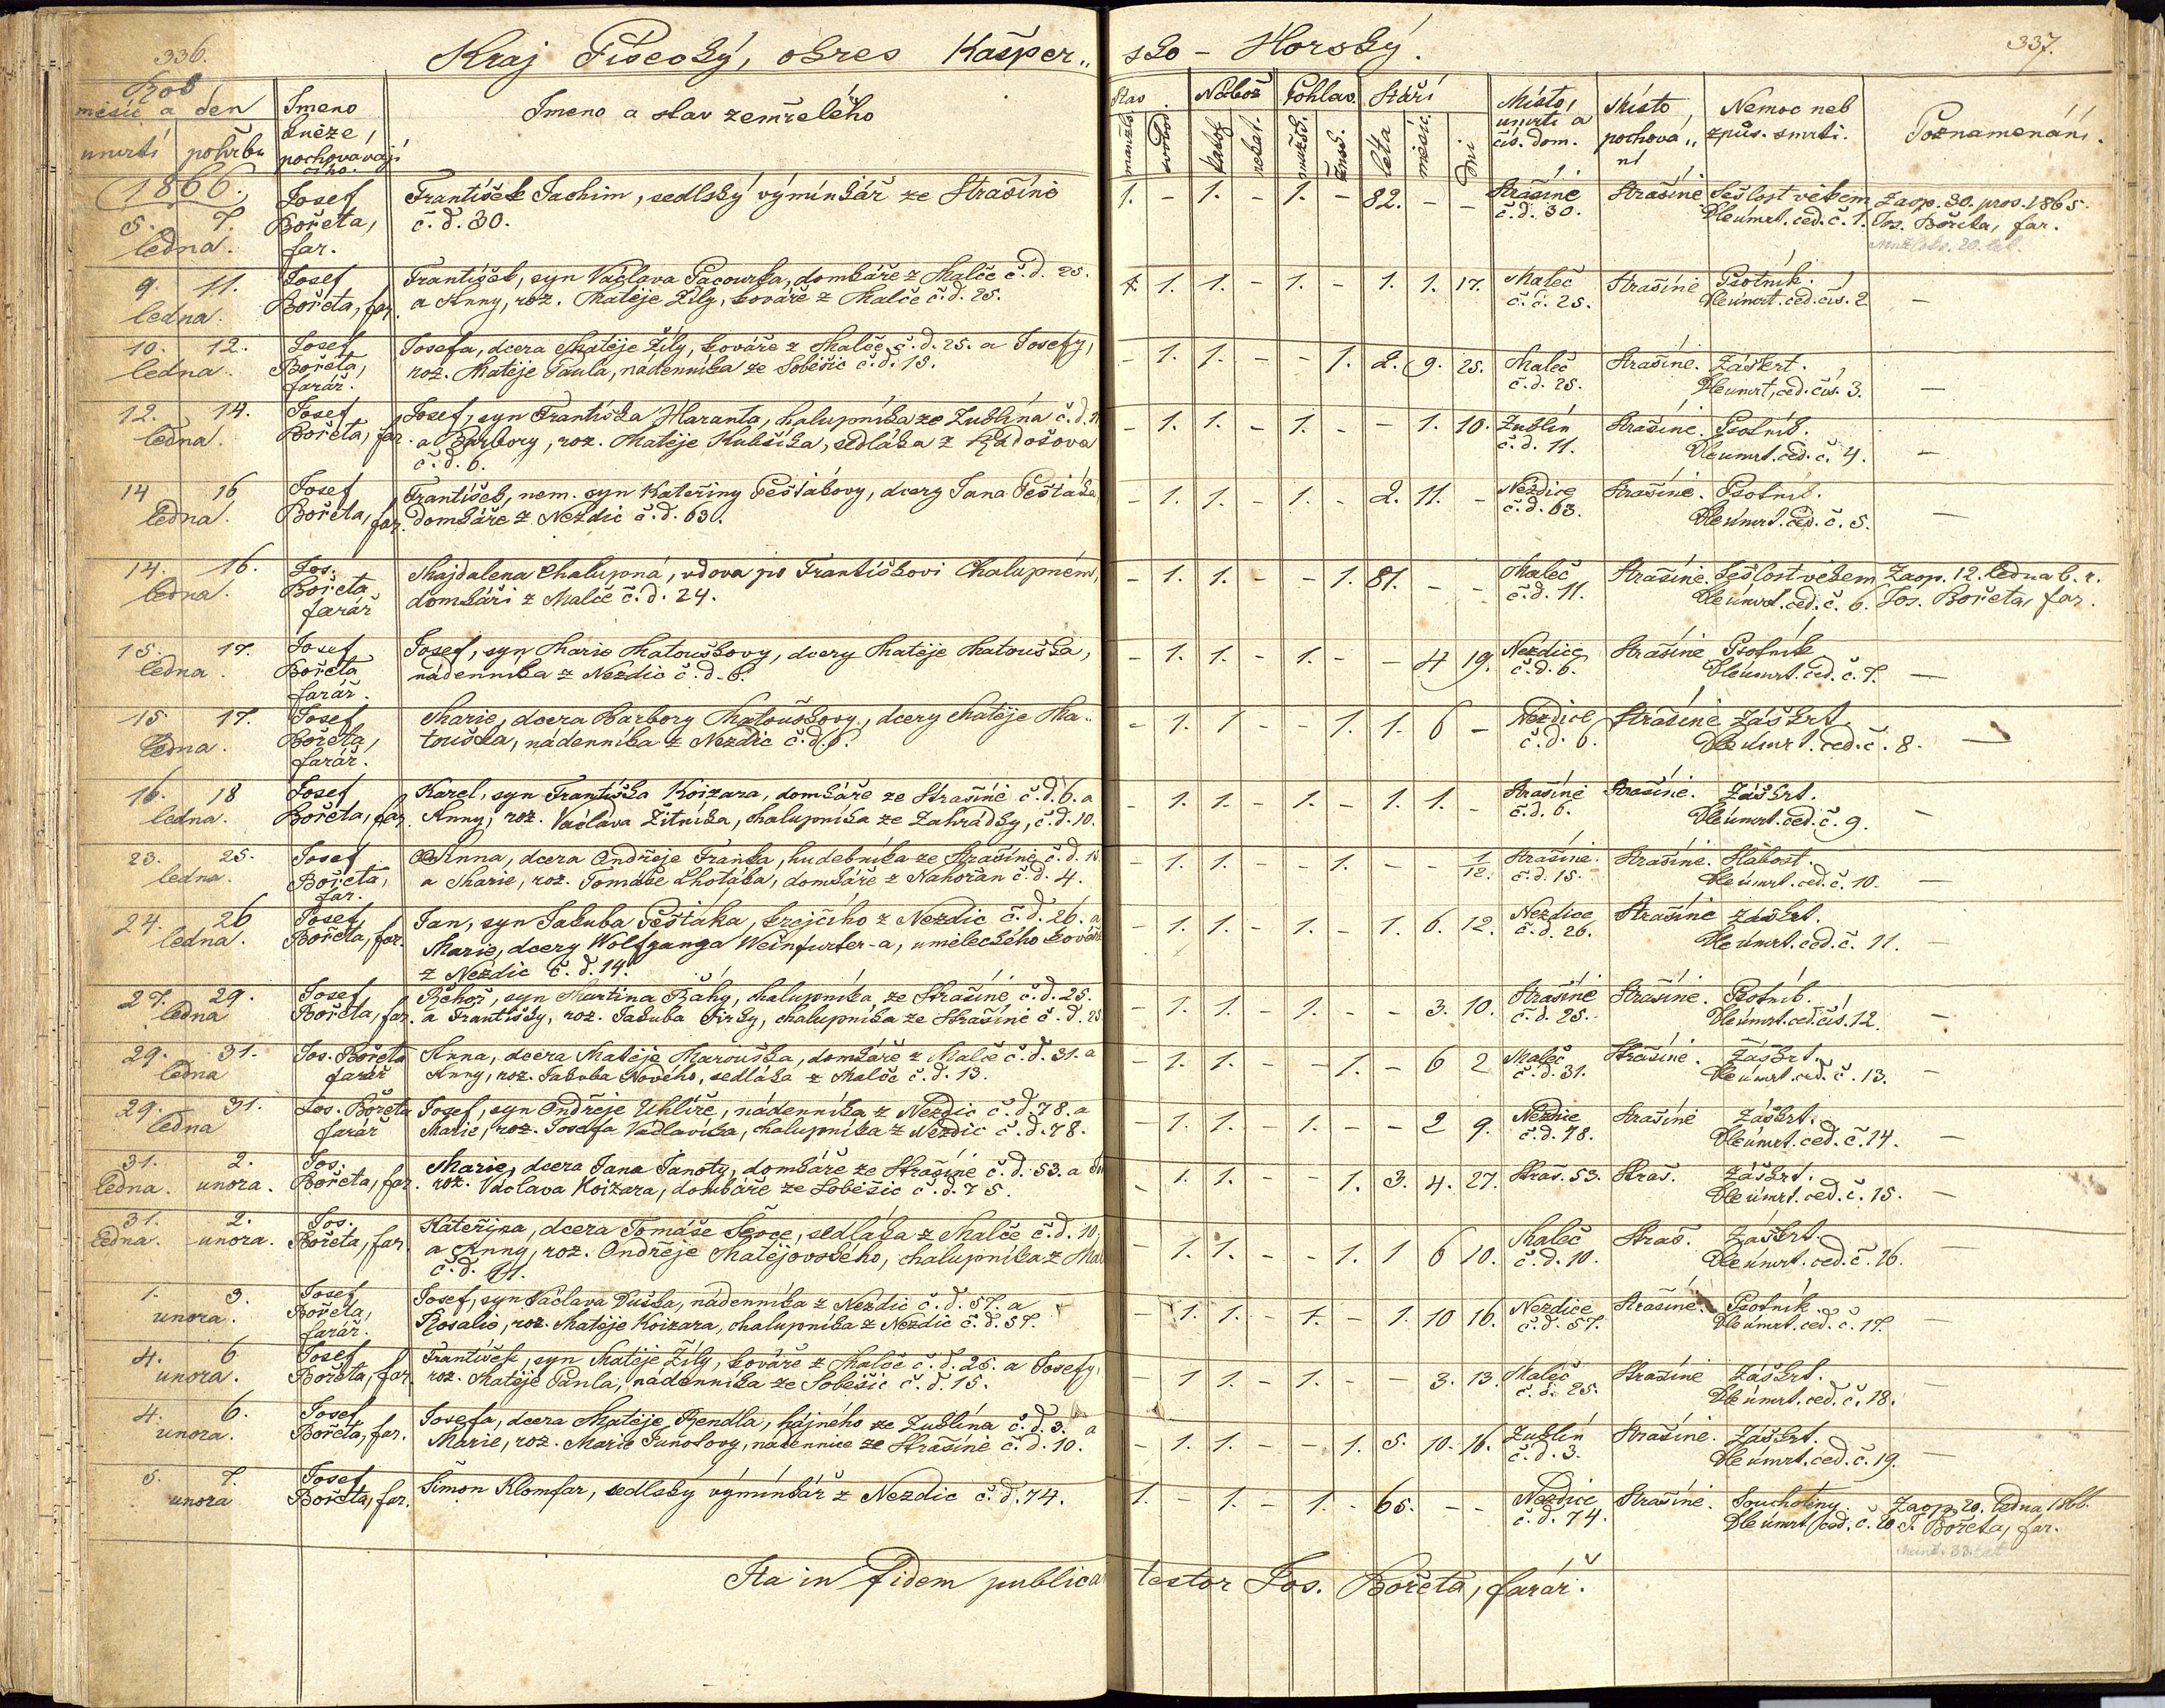 336.
Kraj Písecký, okres Kašper„
sko - Horský.
337.
Rok
měsíc a den
umrtí pohřbu
Jmeno
kněze,
pochovávají
cího.
Jmeno a stav zemřelého
Stav
manžels.
svobod.
Nábož
katol.
nekat.
Pohlav.
mužsk.
žensk.
Stáří
léta
měsíc.
dni
Místo,
umrtí a
čís. dom.
Místo
pochová„
ní
Nemoc neb
způs. smrti.
Poznamenání.
1866.
5. 7.
ledna.
Josef
Bořeta,
far.
František Jachim, sedlský výminkář ze Strašíně
č. d. 30.
1. - 1. - 1. - 82. - -
Strašíně
č. d. 30.
Strašíně
Sešlost věkem
Dle úmrt. ced. č. 1.
Zaop. 30. pros. 1865.
Jos. Bořeta, far.
9. 11.
ledna.
Josef
Bořeta, far.
František, syn Václava Pacourka, domkáře z Malče č. d. 25.
a Anny, roz. Matěje Žíly, kováře z Malče č. d. 25.
1. 1. - 1. - 1. 1. 17.
Maleč
č. č. 25.
Strašíně
Psotník.
Dle úmrt. ced. čís. 2
-
10. 12.
ledna.
Josef
Bořeta,
farář.
Josefa, dcera Matěje Žíly, kováře z Malče č. d. 25. a Josefy,
roz. Matěje Paula, nádenníka ze Soběšic č. d. 15.
- 1. 1. - - 1. 2. 9. 25.
Maleč
č. d. 25.
Strašíně.
Záškrt.
Dle úmrt. ced. čís. 3.
-
12. 14.
ledna.
Josef
Bořeta, far.
Josef, syn Františka Haranta, chalupníka ze Zublína č. d. 11
a Barbory, roz. Matěje Kubešíka, sedláka z Radošova
č. d. 6.
- 1. 1. - 1. - - 1. 10.
Zublín
č. d. 11.
Strašíně.
Psotník.
Dle úmrt. ced. č. 4.
-
14 16
ledna.
Josef
Bořeta, far.
František, nem. syn Kateřiny Peštákovy, dcery Jana Peštáka,
domkáře z Nezdic č. d. 63.
- 1. 1. - 1. - 2. 11. -
Nezdice
č. d. 63.
Strašíně.
Psotník.
Dle úmrt. ced. č. 5.
-
14. 16.
ledna.
Jos.
Bořeta
farář
Majdalena Chalupná, vdova po Františkovi Chalupném,
domkáři z Malče č. d. 24.
- 1. 1. - - 1. 81. - -
Maleč
č. d. 11.
Strašíně.
Sešlost věkem
Dle úmrt. ced. č. 6.
Zaop. 12. ledna b. r.
Jos. Bořeta, far.
15. 17.
ledna.
Josef
Bořeta
farář.
Josef, syn Marie Matouškovy, dcery Matěje Matouška,
nádenníka z Nezdic č. d. 6.
- 1. 1. - 1. - - 4 19.
Nezdice
č. d. 6.
Strašíně
Psotník
Dle úmrt. ced. č. 7.
-
15 17.
ledna.
Josef
Bořeta,
farář.
Marie, dcera Barbory Matouškovy, dcery Matěje Ma„
touška, nádenníka z Nezdic č. d. 6.
- 1. 1 - - 1. 1. 6 -
Nezdice
č. d. 6.
Strašíně
Záškrt.
Dle úmrt. ced. č. 8.
-
16. 18
ledna.
Josef
Bořeta, far.
Karel, syn Františka Koizara, domkáře ze Strašíně č. d. 6. a
Anny, roz. Václava Žitníka, chalupníka ze Zahrádky, č. d. 10.
- 1. 1. - 1. - 1. 1. -
Strašíně
č. d. 6.
Strašíně.
Záškrt.
Dle úmrt. ced. č. 9.
-
23. 25.
ledna.
Josef
Bořeta,
far.
Anna, dcera Ondřeje Franka, hudebníka ze Strašíně č. d. 15
a Marie, roz. Tomáše Lhotáka, domkáře z Nahořan č. d. 4.
- 1. 1. - - 1. - - 1/12.
Strašíně.
č. d. 15.
Strašíně.
Slabost.
Dle úmrt. ced. č. 10.
-
24. 26
ledna.
Josef
Bořeta, far.
Jan, syn Jakuba Peštáka, krejčího z Nezdic č. d. 26. a
Marie, dcery Wolfganga Weinfurter-a, uměleckého kováře
z Nezdic č. d. 14.
- 1. 1. - 1. - 1. 6. 12.
Nezdice
č. d. 26.
Strašíně
Záškrt.
Dle úmrt. ced. č. 11.
-
27. 29.
ledna
Josef
Bořeta, far.
Řehoř, syn Martina Báhy, chalupníka ze Strašíně, č. d. 25.
a Františky, roz. Jakuba Jirky, chalupníka ze Strašíně č. d. 25
- 1. 1. - 1. - - 3. 10.
Strašíně
č. d. 25.
Strašíně.
Psotník.
Dle úmrt. ced. čís. 12.
-
29. 31.
ledna
Jos. Bořeta
farář
Anna, dcera Matěje Marouška, domkáře z Malče č. d. 31. a
Anny, roz. Jakuba Nového, sedláka z Malče č. d. 13.
- 1. 1. - - 1. - 6 2
Maleč
č. d. 31.
Strašíně.
Záškrt.
Dle úmrt. ced. č. 13.
-
29. 31.
ledna
Jos. Bořeta
farář
Josef, syn Ondřeje Uhlíře, nádenníka z Nezdic č. d. 78. a
Marie, roz. Josefa Vadlavíka, chalupníka z Nezdic č. d. 78.
- 1. 1. - 1. - - 2 9.
Nezdice
č. d. 78.
Strašíně
Záškrt.
Dle úmrt. ced. č. 14.
-
31. 2.
ledna. unora.
Jos.
Bořeta, far.
Marie, dcera Jana Janoty, domkáře ze Strašíně č. d. 53. a
roz. Václava Koizara, domkáře ze Soběšic č. d. 75.
- 1. 1. - - 1. 3. 4. 27.
Straš. 53.
Straš.
Záškrt.
Dle úmrt. ced. č. 15.
-
31. 2.
ledna. unora.
Jos.
Bořeta, far.
Kateřina, dcera Tomáše Ševce, sedláka z Malče č. d. 10,
a Anny, roz. Ondřeje Matějovského, chalupníka z Mal
č. d. 11.
- 1. 1. - - 1. 1 6 10.
Maleč
č. d. 10.
Straš.
Záškrt.
Dle úmrt. ced. č. 16.
-
1. 3.
unora.
Josef
Bořeta,
farář.
Josef, syn Václava Duška, nádenníka z Nezdic č. d. 57. a
Rosalie, roz. Matěje Koizara, chalupníka z Nezdic č. d. 57
- 1. 1. - 1. - 1. 10 16.
Nezdice
č. d. 57.
Strašíně.
Psotník.
Dle úmrt. ced. č. 17.
-
4. 6
unora.
Josef
Bořeta, far.
František, syn Matěje Žíly, kováře z Malče č. d. 25. a Josefy,
roz. Matěje Paula, nádenníka ze Soběšic č. d. 15.
- 1 1. - 1. - - 3. 13.
Maleč
č. d. 25.
Strašíně
Záškrt.
Dle úmrt. ced. č. 18.
-
4. 6.
unora.
Josef
Bořeta, far.
Josefa, dcera Matěje Bendla, hájného ze Zublína č. d. 3. a
Marie, roz. Marie Junotovy, nádennice ze Strašíně č. d. 10.
- 1. 1. - - 1. 5. 10. 16.
Zublín
č. d. 3.
Strašíně.
Záškrt.
Dle úmrt. ced. č. 19.
-
5. 7.
unora
Josef
Bořeta, far.
Šimon Klomfar, sedlský výmínkář z Nezdic č. d. 74.
1. - 1. - 1. - 65. - -
Nezdice
č. d. 74.
Strašíně.
Souchotiny.
Dle úmrt. ced. č. 20.
Zaop. 20. ledna 1866.
J. Bořeta, far.
Ita in fidem publica
testor Jos. Bořeta, farář.